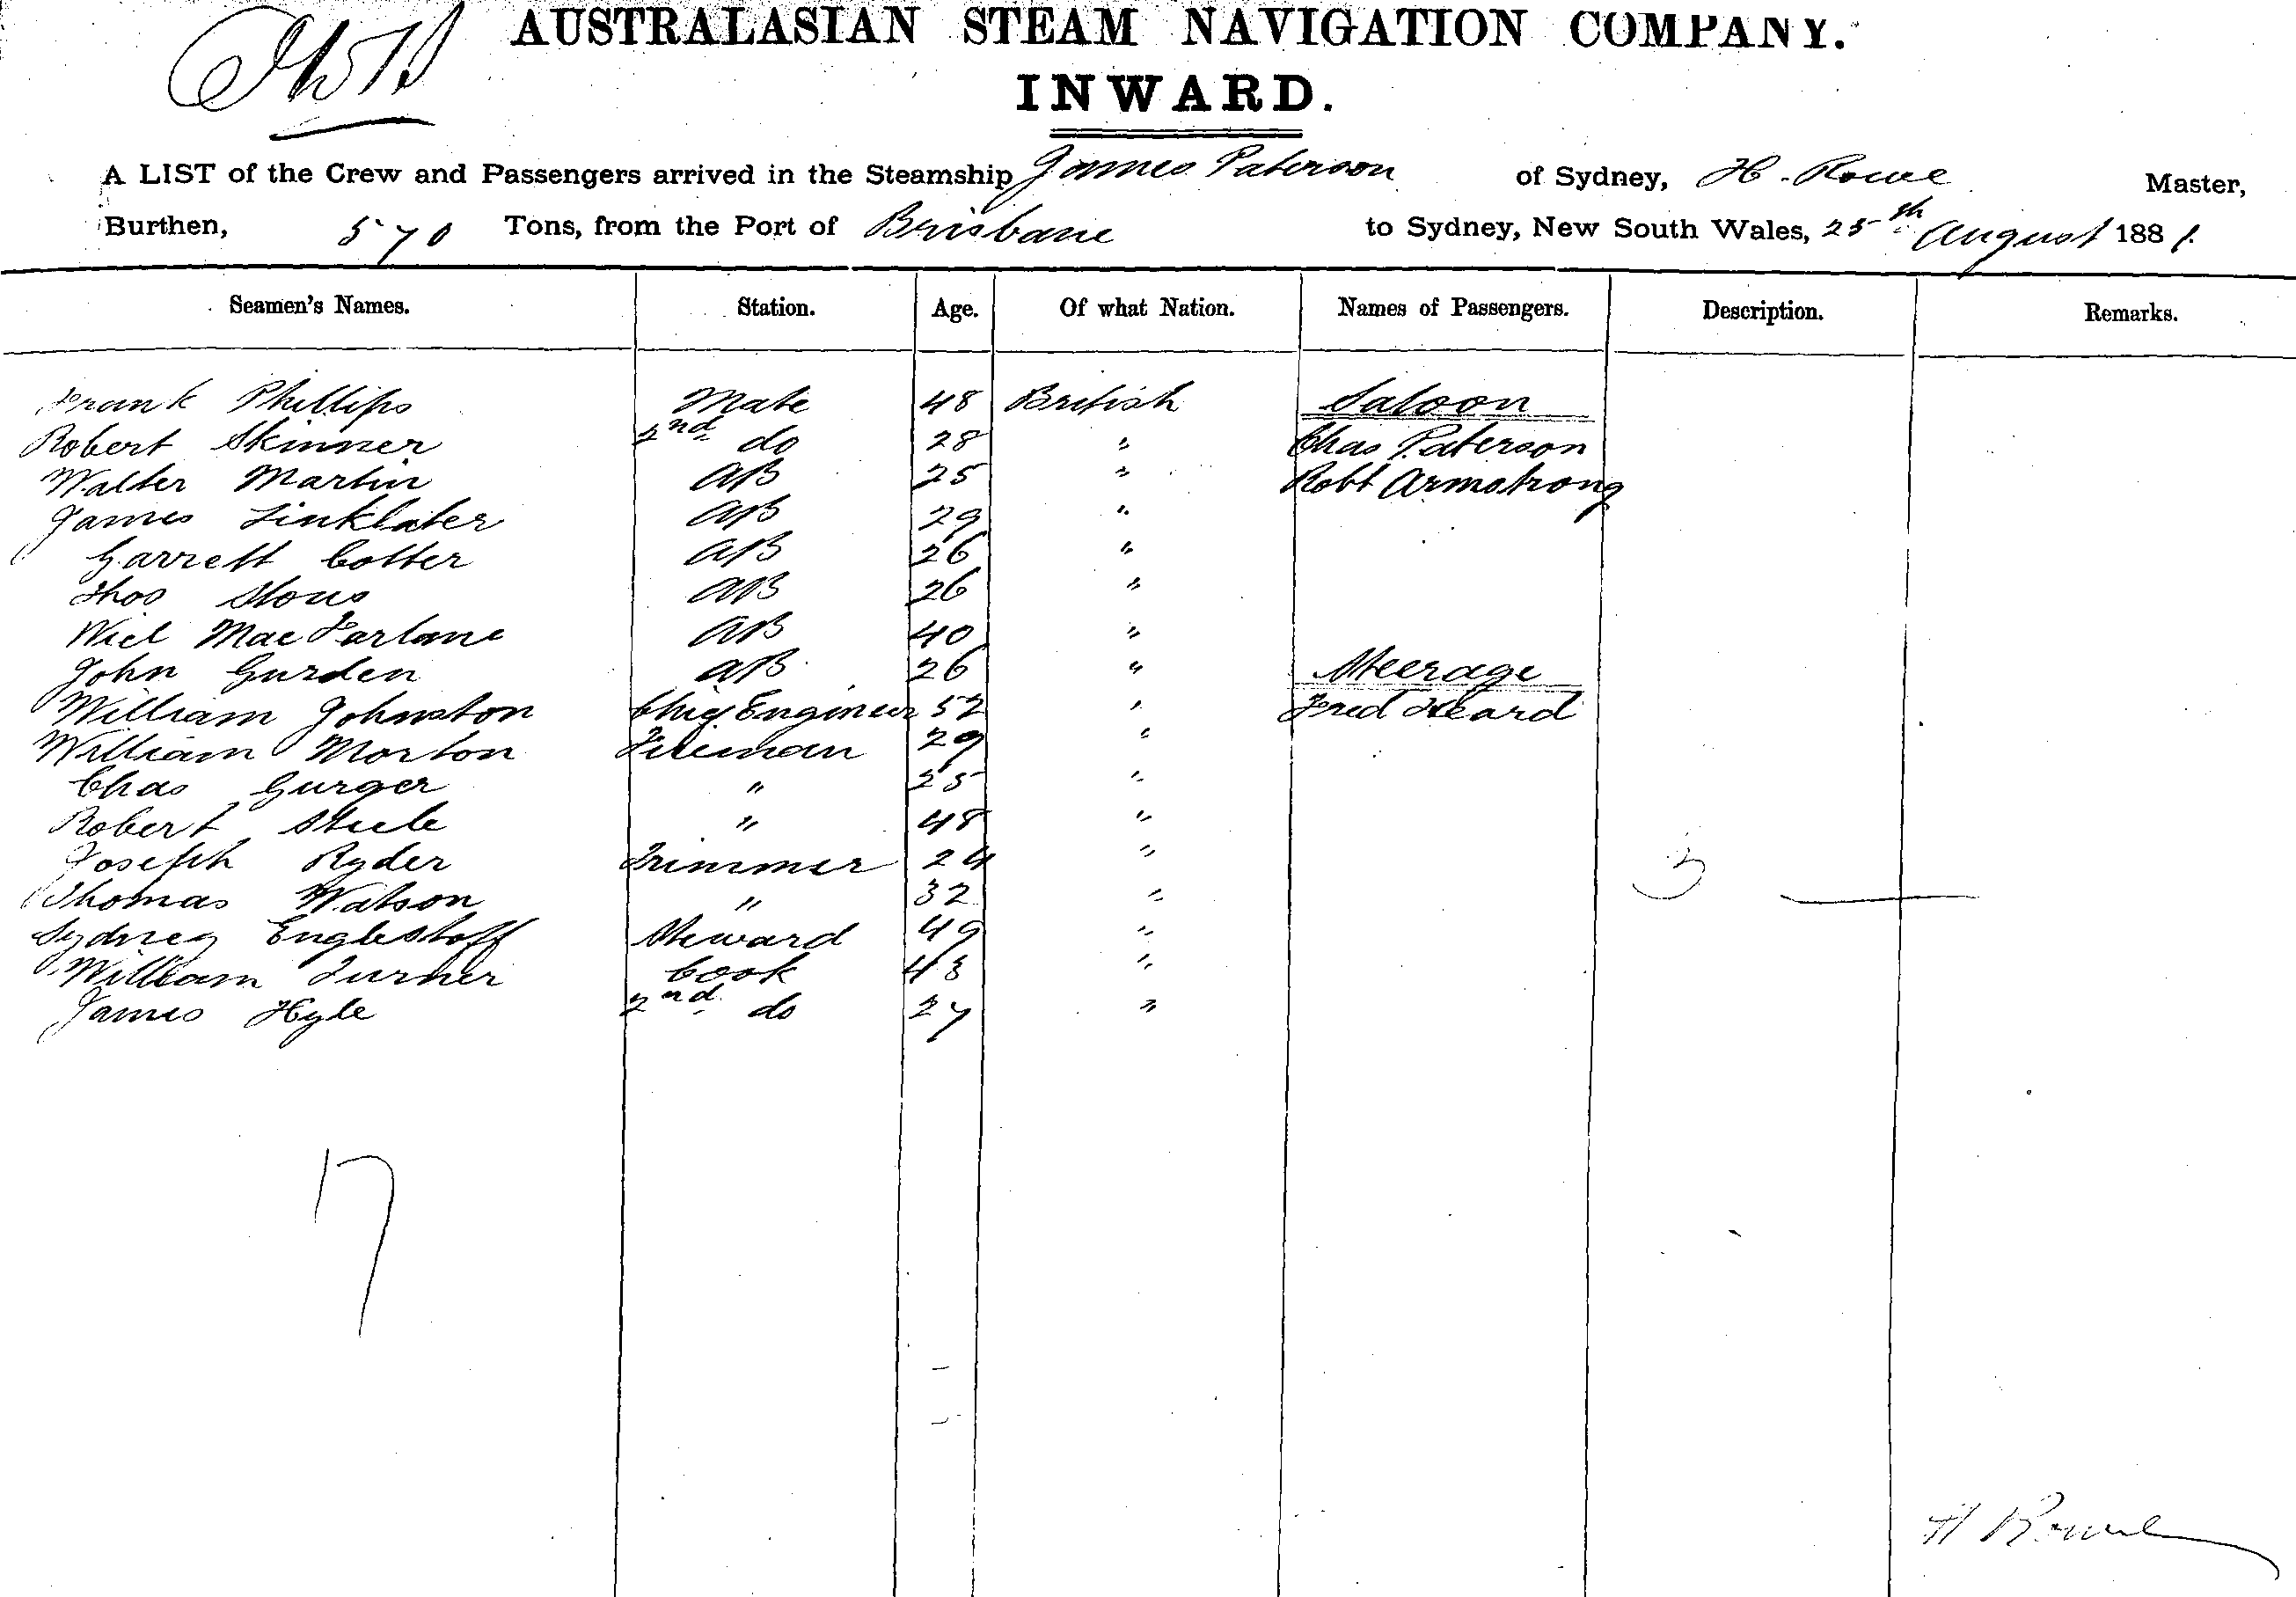 AUSTRALASIAN STEAM NAVIGATION COMPANY.
INWARD.
A LIST of the Crew and Passengers arrived in the Steamship James Paterson of Sydney, H. Rowe Master,
Burthen, 570 Tons, from the Port of Brisbane to Sydney, New South Wales, 25th August 1881.
Seamen's Names. Station. Age. Of what Nation. Names of Passengers. Description. Remarks.
Frank Phillips Mate 48 British Saloon
Robert Skinner 2nd do 28 " Chas Paterson
Walter Martin AB 25 " Robt Armstrong
James Linklater AB 29 "
Garrett Cotter AB 26 "
Thos AB 26 "
MacFarlane AB 40 "
John Gurden AB 26 " Steerage
William Johnston Chief Engineer 52 " Fred Heard
William Morton Fireman 29 "
Chas Gurger " 25 "
Robert Steele " 48 "
Joseph Ryder Trimmer 24 "
3
Thomas Watson " 32 "
Sydney Steward 49 "
William Turner Cook 43 "
James Hyle 2nd do 27 "
17
H Rowe